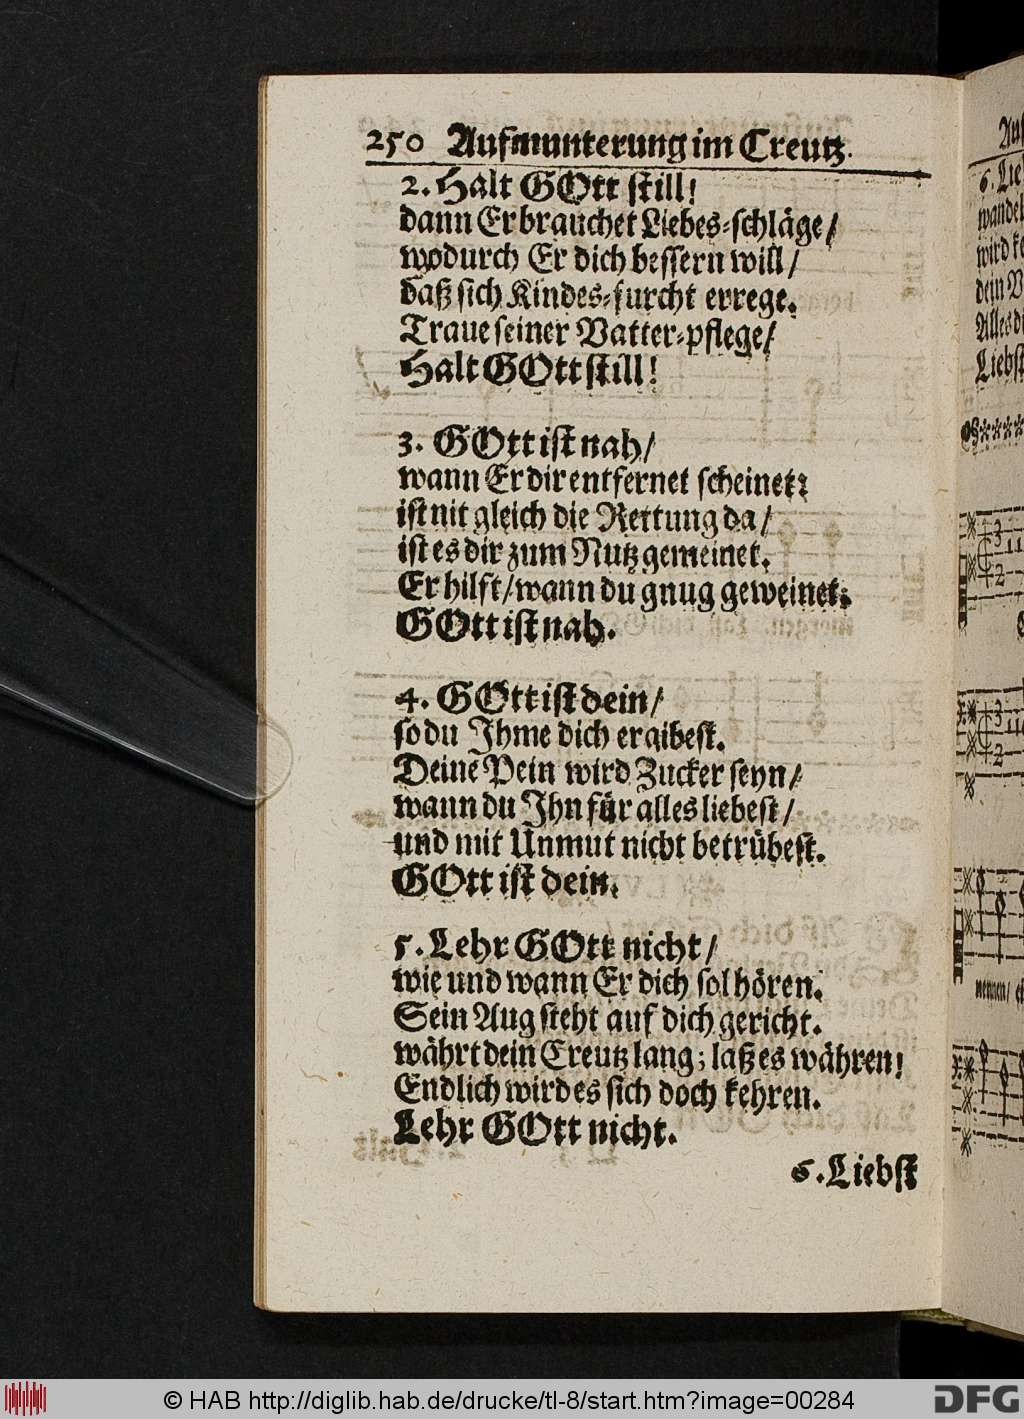 250 Aufmunterung im Creutz.
2. Halt GOtt still!
dann Er brauchet Liebes-schläge/
wodurch Er dich bessern will/
daß sich Kindes-furcht errege.
Traue seiner Vatter-pflege/
Halt GOtt still!
3. GOtt ist nah/
wann Er dir entfernet scheinet:
ist nit gleich die Rettung da/
ist es dir zum Nutz gemeinet.
Er hilft/wann du gnug geweinet.
GOtt ist nah.
4. GOtt ist dein/
so du Ihme dich ergibest.
Deine Pein wird Zucker seyn/
wann du Ihn für alles liebest/
und mit Unmut nicht betrübest.
GOtt ist dein.
5. Lehr GOtt nicht/
wie und wann Er dich sol hören.
Sein Aug steht auf dich gericht.
währt dein Creutz lang; laß es währen!
Endlich wird es sich doch kehren.
Lehr GOtt nicht.
6. Liebst
Auf
6. Lie
wandel
wird ke
dein V
Alles d
Liebst
nennen/ ei
© HAB http://diglib.hab.de/drucke/tl-8/start.htm?image=00284
DFG